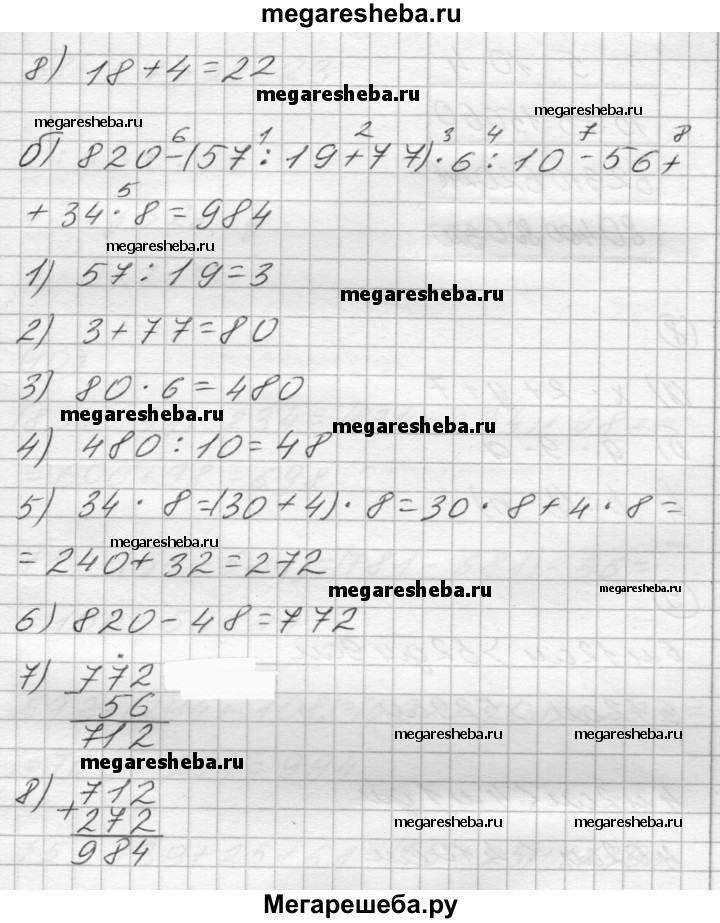 megaresheba.ru
8) 18+4=22
megaresheba.ru
megaresheba.ru
megaresheba.ru
6 1 2 3 4 7 8
б) 820-(57:19+77)·6:10-56+
5
+34·8=984
megaresheba.ru
1) 57:19=3
megaresheba.ru
2) 3+77=80
3) 80·6=480
megaresheba.ru
megaresheba.ru
4) 480:10=48
5) 34·8=(30+4)·8=30·8+4·8=
megaresheba.ru
=240+32=272
megaresheba.ru
megaresheba.ru
6) 820-48=772
7) 772
- 56
712
megaresheba.ru
megaresheba.ru
megaresheba.ru
8) 712
+ 272
984
megaresheba.ru
megaresheba.ru
Мегарешеба.ру